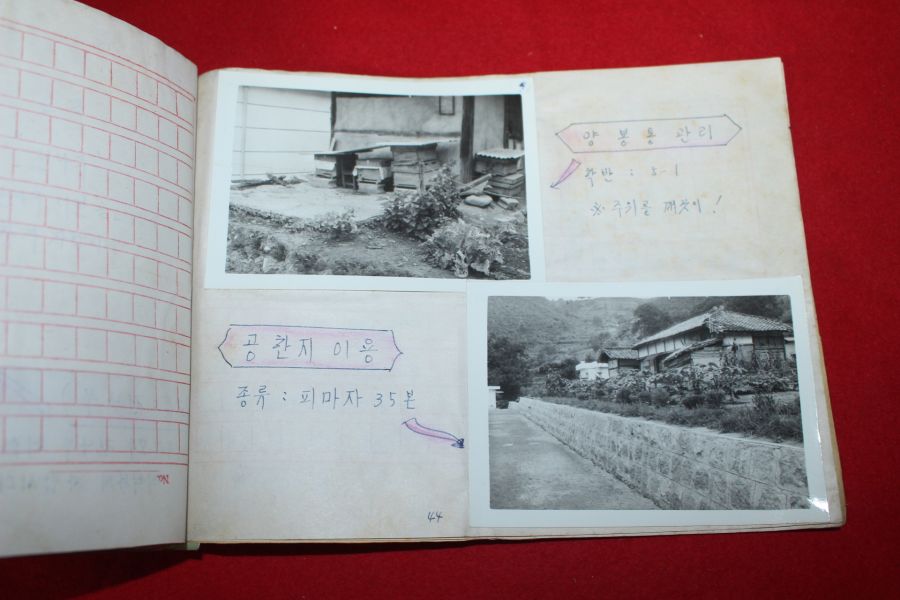 양봉용 관리
학반 : 5-1
※ 주의를 깨끗이!
공한지 이용
종류 : 피마자 35본
44
No.